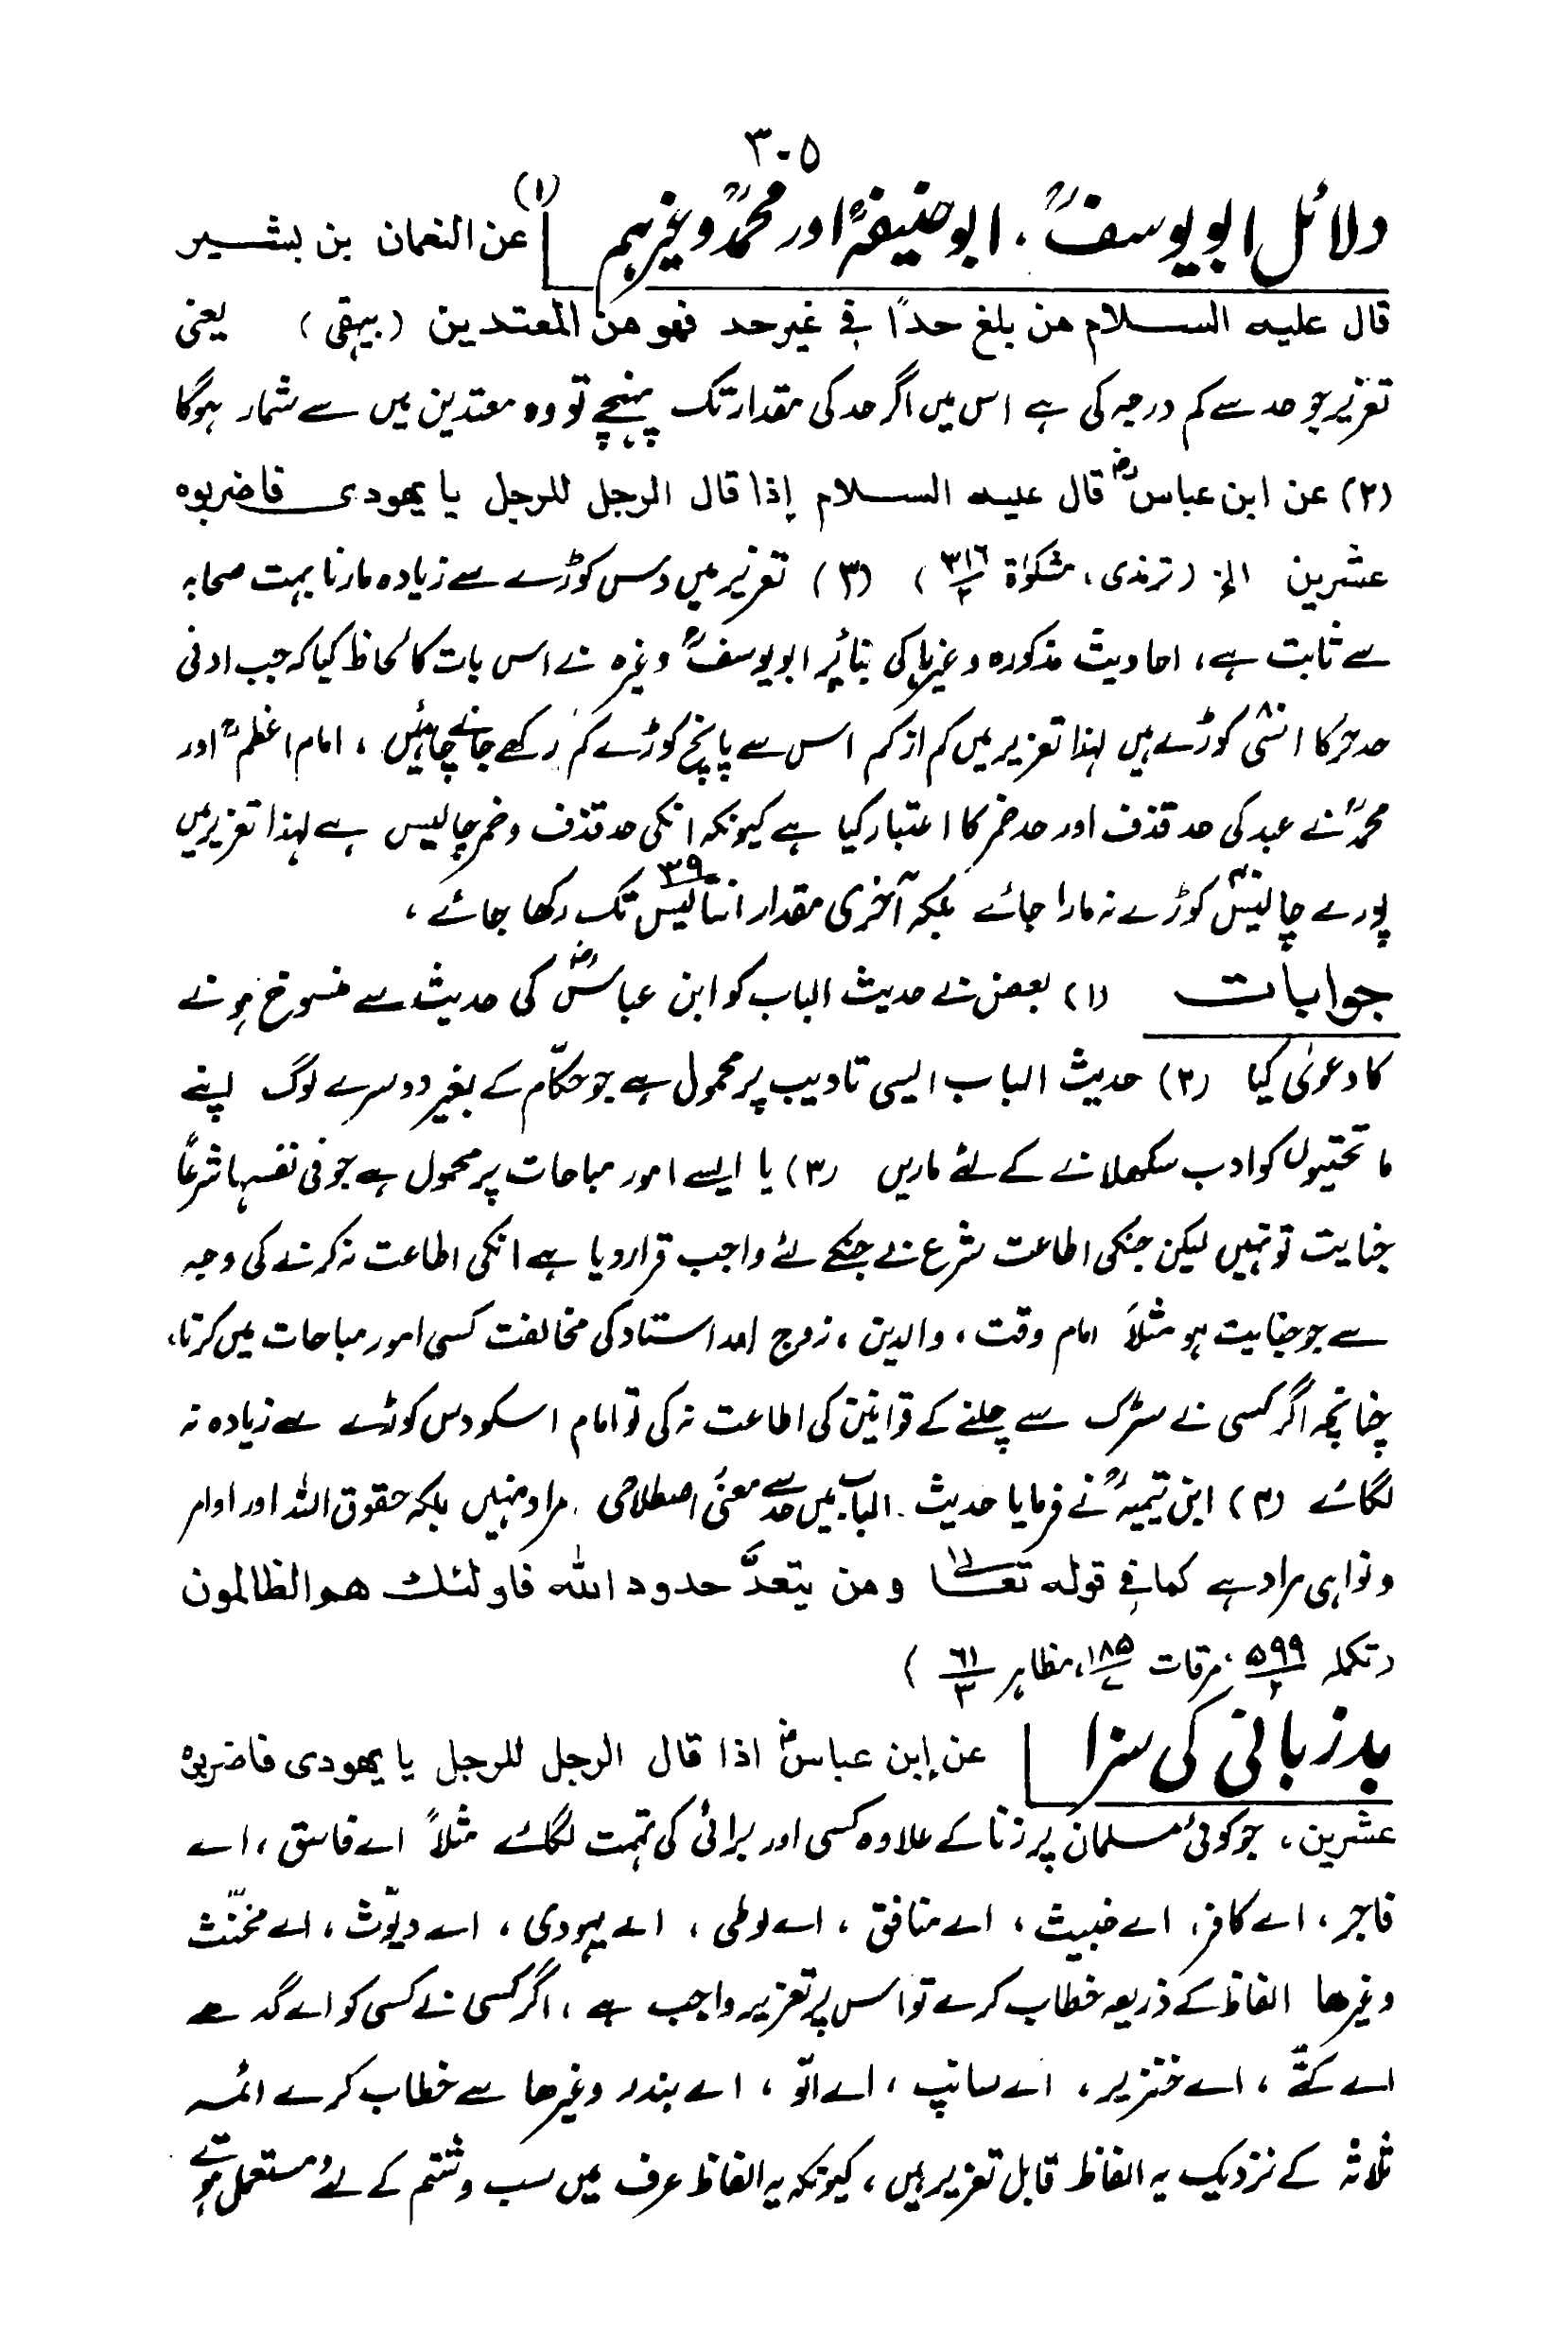 ۳۰۵
دلائل ابو یوسفؒ، ابو حنیفہؒ اور محمدؒ وغیرہم (۱) عن النعمان بن بشیر
قال علیہ السلام من بلغ حدًا فی غیر حد فھو من المعتدین (بیہقی) یعنی
تعزیر جو حد سے کم درجہ کی ہے اس میں اگر حد کی مقدار تک پہنچے تو وہ معتدین میں سے شمار ہوگا
(۲) عن ابن عباسؓ قال علیہ السلام إذا قال الرجل للرجل یا یھودی فاضربوہ
عشرین الخ (ترمذی، مشکوٰۃ ۳۱۶/۲) (۳) تعزیر میں دس کوڑے سے زیادہ مارنا بہت صحابہ
سے ثابت ہے، احادیث مذکورہ وغیرہا کی بنا پر ابو یوسفؒ وغیرہ نے اس بات کا لحاظ کیا کہ جب ادنی
حد حر کا انسی۸۰ کوڑے ہیں لہذا تعزیر میں کم از کم اس سے پانچ کوڑے کم رکھے جانے چاہئیں، امام اعظمؒ اور
محمدؒ نے عبد کی حد قذف اور حد خمر کا اعتبار کیا ہے کیونکہ انکی حد قذف و خمر چالیس ہے لہذا تعزیر میں
پورے چالیس۴۰ کوڑے نہ مارا جائے بلکہ آخری مقدار انتالیس۳۹ تک رکھا جائے،
جوابات (۱) بعض نے حدیث الباب کو ابن عباسؓ کی حدیث سے منسوخ ہونے
کا دعویٰ کیا (۲) حدیث الباب ایسی تادیب پر محمول ہے جو حکّام کے بغیر دوسرے لوگ اپنے
ماتحتیوں کو ادب سکھلانے کے لئے ماریں (۳) یا ایسے امور مباحات پر محمول ہے جو فی نفسہا شرعًا
جنایت تو نہیں لیکن جنکی اطاعت شرع نے جنکے لئے واجب قرار دیا ہے انکی اطاعت نہ کرنے کی وجہ
سے جو جنایت ہو مثلاً امام وقت، والدین، زوج اور استاد کی مخالفت کسی امور مباحات میں کرنا،
چنانچہ اگر کسی نے سڑک سے چلنے کے قوانین کی اطاعت نہ کی تو امام اسکو دس کوڑے سے زیادہ نہ
لگائے (۴) ابن تیمیہؒ نے فرمایا حدیث الباب میں حد سے معنٰی اصطلاحی مراد نہیں بلکہ حقوق اللہ اور اوامر
و نواہی مراد ہے کما فی قولہ تعالیٰ ومن یتعدَّ حدود اللہ فاولئک ھم الظالمون
(تکملہ ۵۹۹/۲، مرقات ۱۸۵/۷، مظاہر ۶۱/۳)
بدزبانی کی سزا عن إبن عباسؓ اذا قال الرجل للرجل یا یھودی فاضربوہ
عشرین، جو کوئی مسلمان پر زنا کے علاوہ کسی اور برائی کی تہمت لگائے مثلاً اے فاسق، اے
فاجر، اے کافر، اے خبیث، اے منافق، اے لوطی، اے یہودی، اے دیّوث، اے مخنّث
وغیرھا الفاظ کے ذریعہ خطاب کرے تو اس پر تعزیر واجب ہے، اگر کسی نے کسی کو اے گدھے
اے کتّے، اے خنزیر، اے سانپ، اے الّو، اے بندر وغیرھا سے خطاب کرے ائمہ
ثلاثہ کے نزدیک یہ الفاظ قابل تعزیر ہیں، کیونکہ یہ الفاظ عرف میں سب و شتم کے لئے مستعمل ہوتے